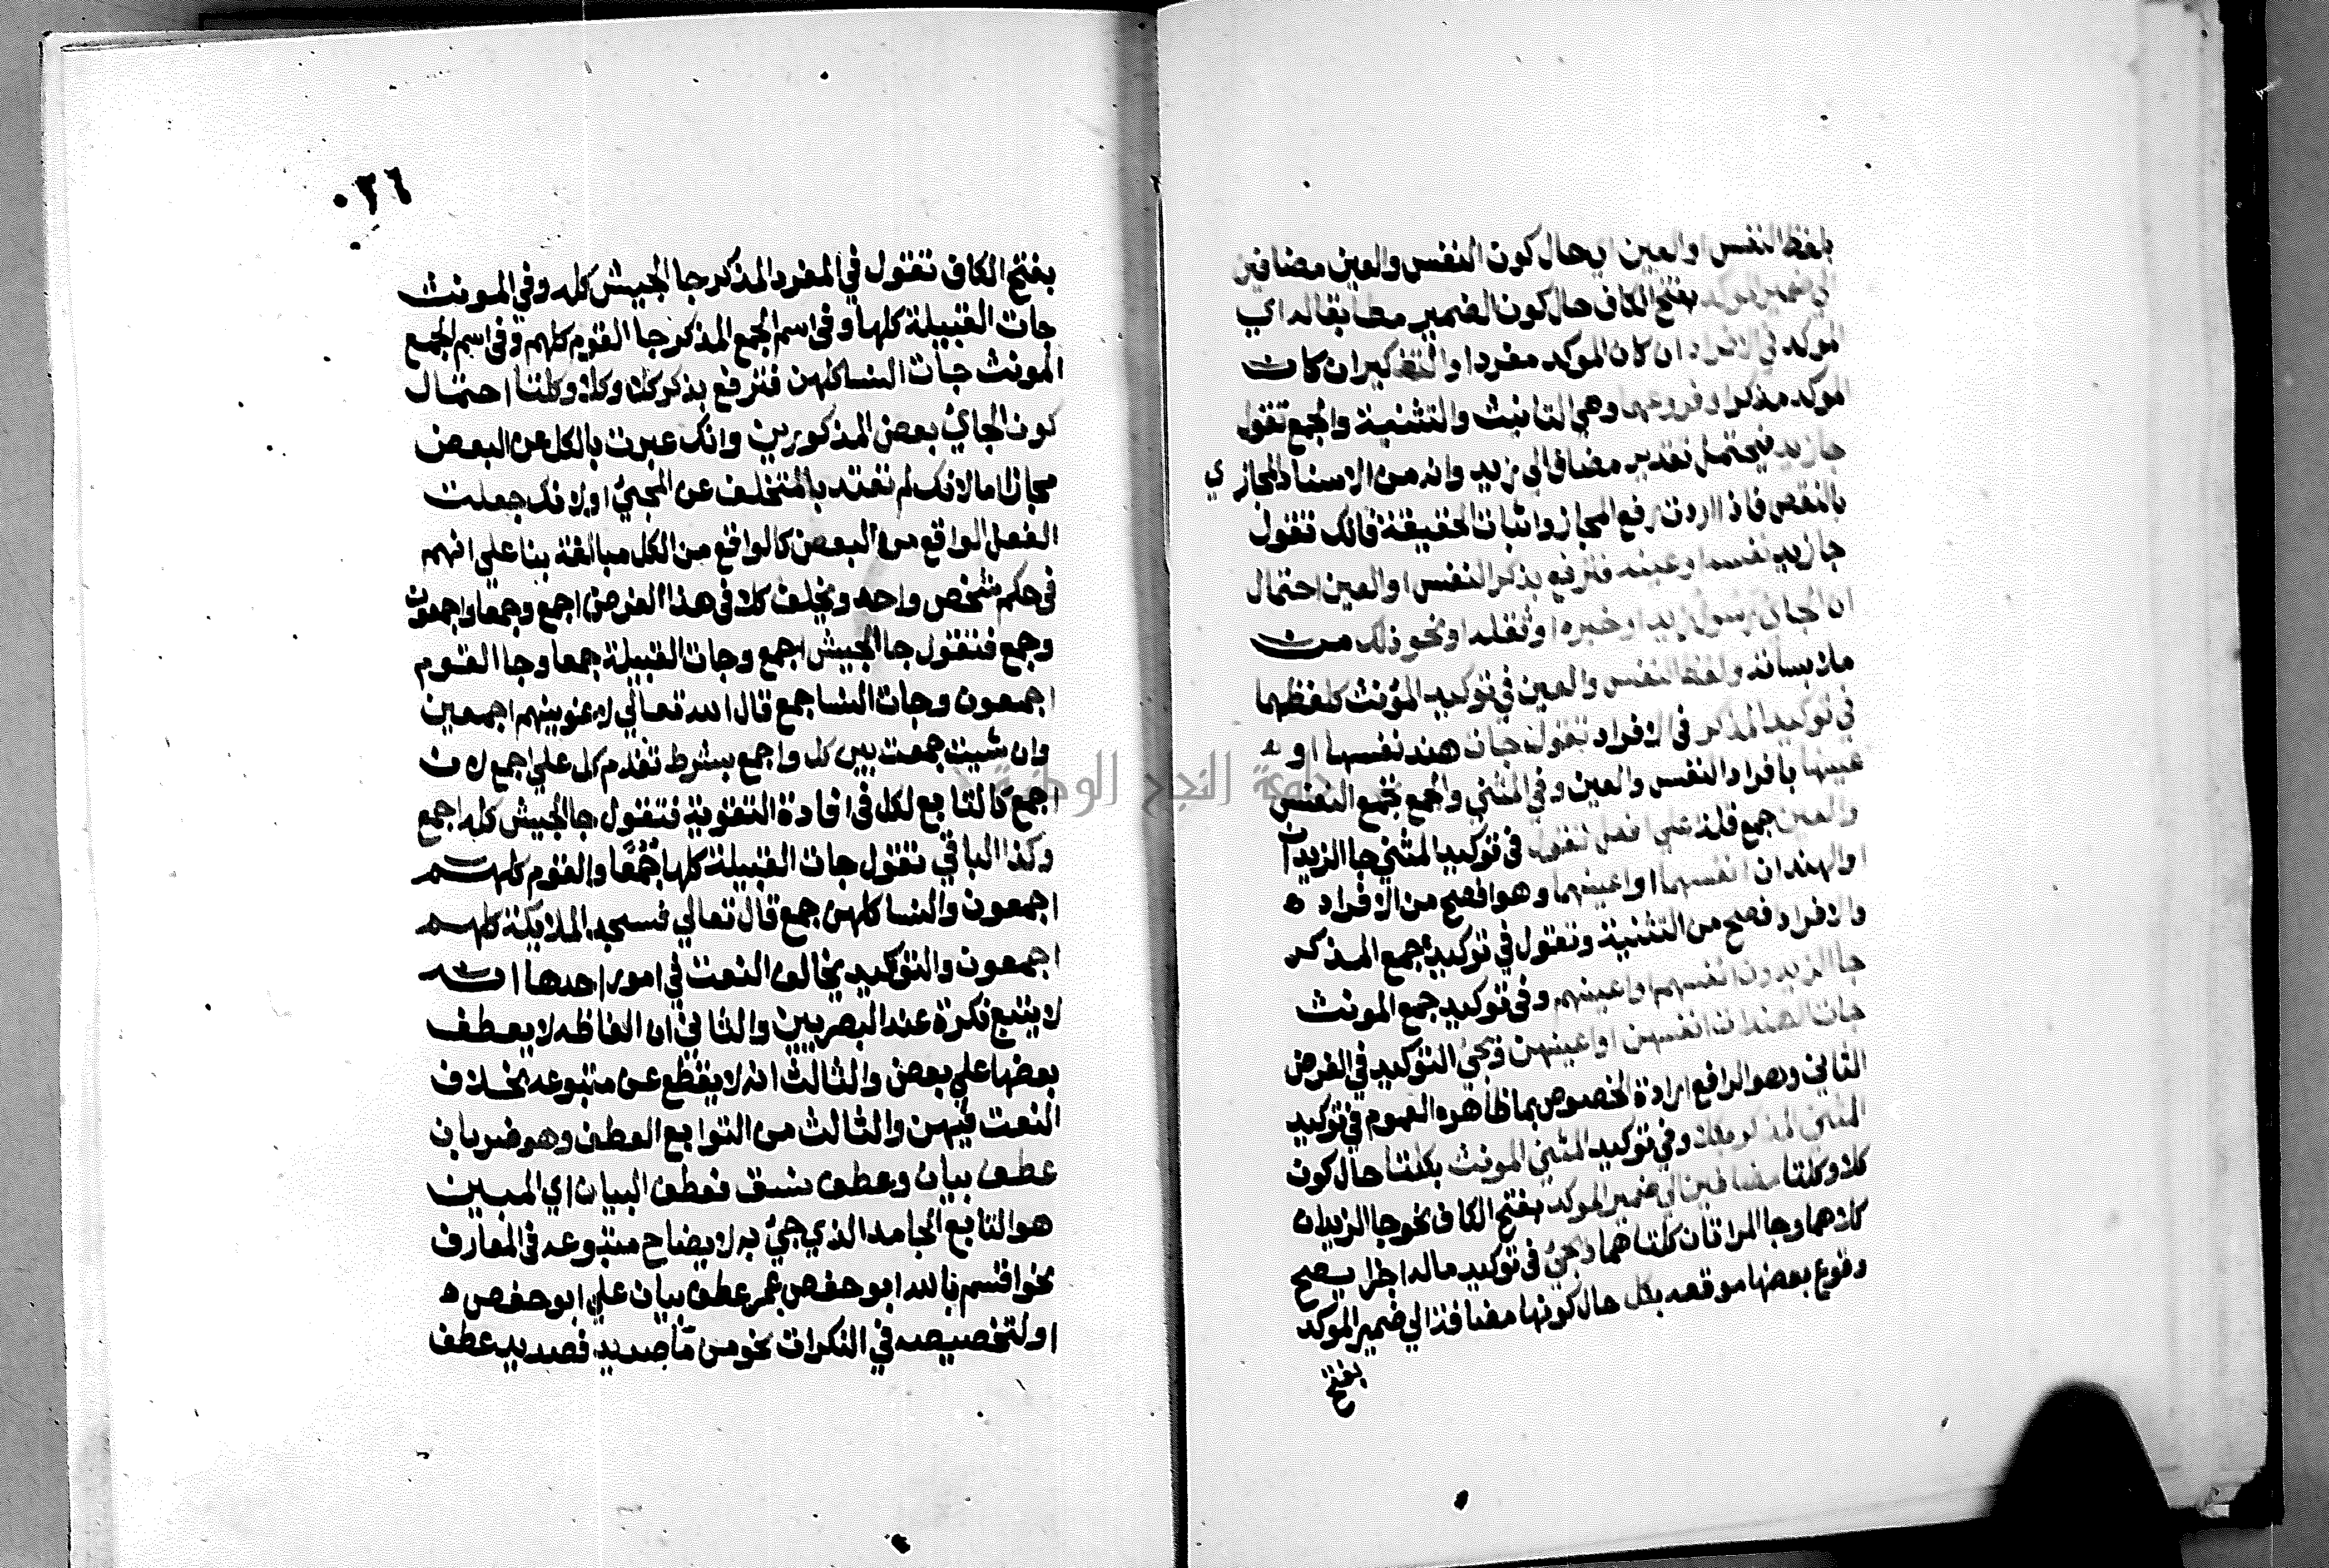 بلفظ النفس او العين اي حال كون النفس والعين مضافين
الي ضمير الموكد بفتح الكاف حال كون الضمير مطابقا له اي
الموكد في الافراد ان كان الموكد مفردا والتذكير ان كان
الموكد مذكرا وفروعهما وهي التانيث والتثنية والجمع تقول
جا زيد فيحتمل تقدير مضاف الي زيد وانه من الاسناد المجازي
بالنقص فاذا اردت رفع المجاز واثبات الحقيقة فانك تقول
جا زيد نفسه او عينه فترفع بذكر النفس او العين احتمال
ان الجاي رسول زيد او خبره او ثقله او نحو ذلك من
ملابساته ولفظ النفس والعين في توكيد المؤنث كلفظهما
في توكيد المذكر في الافراد تقول جات هند نفسها او
عينها بافراد النفس والعين وفي المثني والجمع تجمع النفس
والعين جمع قلة علي افعل تقول في توكيد المثني جا الزيدان
او الهندان انفسهما او اعينهما وهو افصح من الافراد ه
والافراد فصيح من التثنية وتقول في توكيد جمع المذكر
جا الزيدون انفسهم او اعينهم وفي توكيد جمع المونث
جات الهندات انفسهن او اعينهن ويجئ التوكيد في الغرض
الثاني وهو الرافع ارادة الخصوص بما ظاهره العموم في توكيد
المثني المذكر بكلا وفي توكيد المثني المونث بكلتا حال كون
كلا وكلتا مضافين الي ضمير الموكد بفتح الكاف نحو جا الزيدان
كلاهما وجا المراتان كلتاهما ويجئ في توكيد ماله اجزا يصح
وقوع بعضها موقعه بكل حال كونها مضافة الي ضمير الموكد
بفتح
٠٢٦
بفتح الكاف تقول في المفرد المذكر جا الجيش كله وفي المونث
جات القبيلة كلها وفي اسم الجمع المذكر جا القوم كلهم وفي اسم الجمع
المونث جات النسا كلهن فترفع بذكر كلا وكل وكلتا احتمال
كون الجاي بعض المذكورين وانك عبرت بالكل عن البعض
مجازا اما لانك لم تعتد بالمتخلف عن المجئ او لانك جعلت
الفعل الواقع من البعض كالواقع من الكل مبالغة بنا علي انهم
في حكم شخص واحد ويخلف كلا في هذا الغرض اجمع وجمعا واجمعون
وجمع فتقول جا الجيش اجمع وجات القبيلة جمعا وجا القوم
اجمعون وجات النسا جمع قال الله تعالي لاغوينهم اجمعين
وان شيت جمعت بين كل واجمع بشرط تقدم كل علي اجمع لان
اجمع كالتابع لكل في افادة التقوية فتقول جا الجيش كله اجمع
وكذا الباقي تقول جات القبيلة كلها جمعا والقوم كلهم
اجمعون والنسا كلهن جمع قال تعالي فسجد الملايكة كلهم
اجمعون والتوكيد يخالف النعت في امور احدها انه
لا يتبع نكرة عند البصريين والثاني ان الفاظه لا يعطف
بعضها علي بعض والثالث انه لا يقطع عن متبوعه بخلاف
النعت فيهن والثالث من التوابع العطف وهو ضربان
عطف بيان وعطف نسق فعطف البيان اي المبين
هو التابع الجامد الذي جئ به لايضاح متبوعه في المعارف
نحو اقسم بالله ابو حفص عمر عطف بيان علي ابو حفص ه
او لتخصيصه في النكرات نحو من مآ صديد فصديد عطف
جامعة النجاح الوطنية